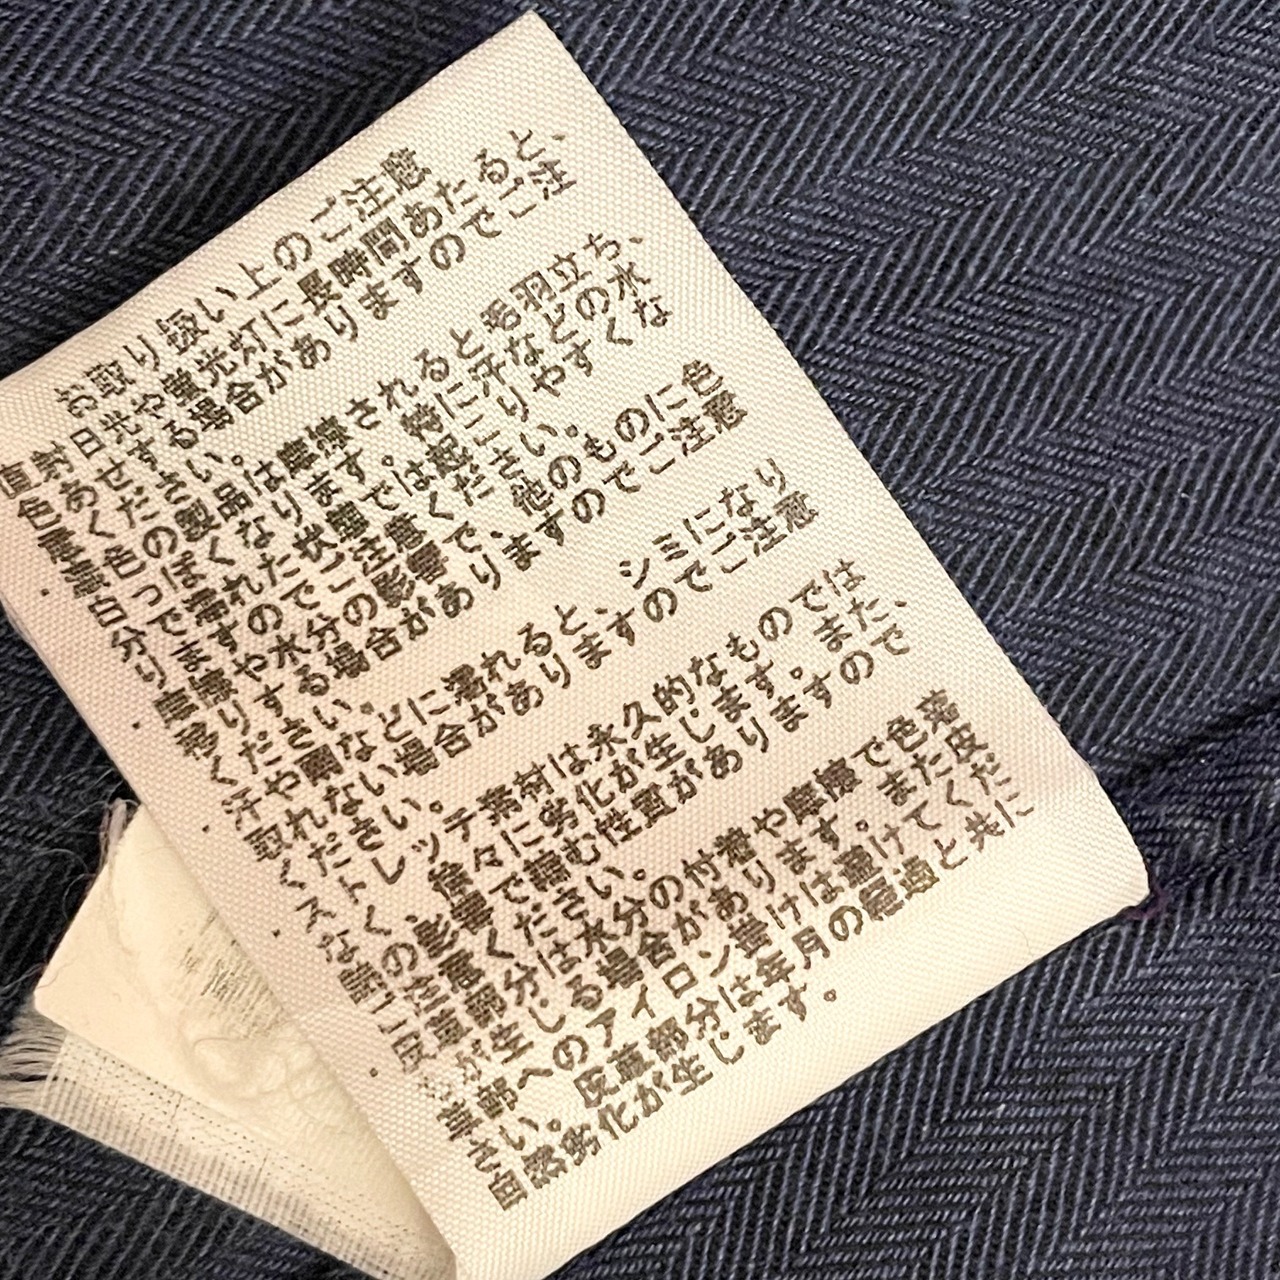 お取り扱い上のご注意
直射日光や蛍光灯に長時間あたると、
色あせする場合がありますのでご注
意ください。
・濃色の製品は摩擦されると毛羽立ち、
白っぽくなります。特に汗などの水
分で濡れた状態では起こりやすくな
りますのでご注意ください。
・摩擦や水分の影響で、他のものに色
移りする場合がありますのでご注意
ください。
・汗や雨などに濡れると、シミになり
取れない場合がありますのでご注意
ください。
・ストレッチ素材は永久的なものでは
なく、徐々に劣化が生じます。また、
の影響で縮む性質がありますので
ご注意ください。
・皮革部分は水分の付着や摩擦で色落
ちが生じる場合があります。また皮
革部へのアイロン掛けは避けてくだ
さい。皮革部分は年月の経過と共に
自然劣化が生じます。